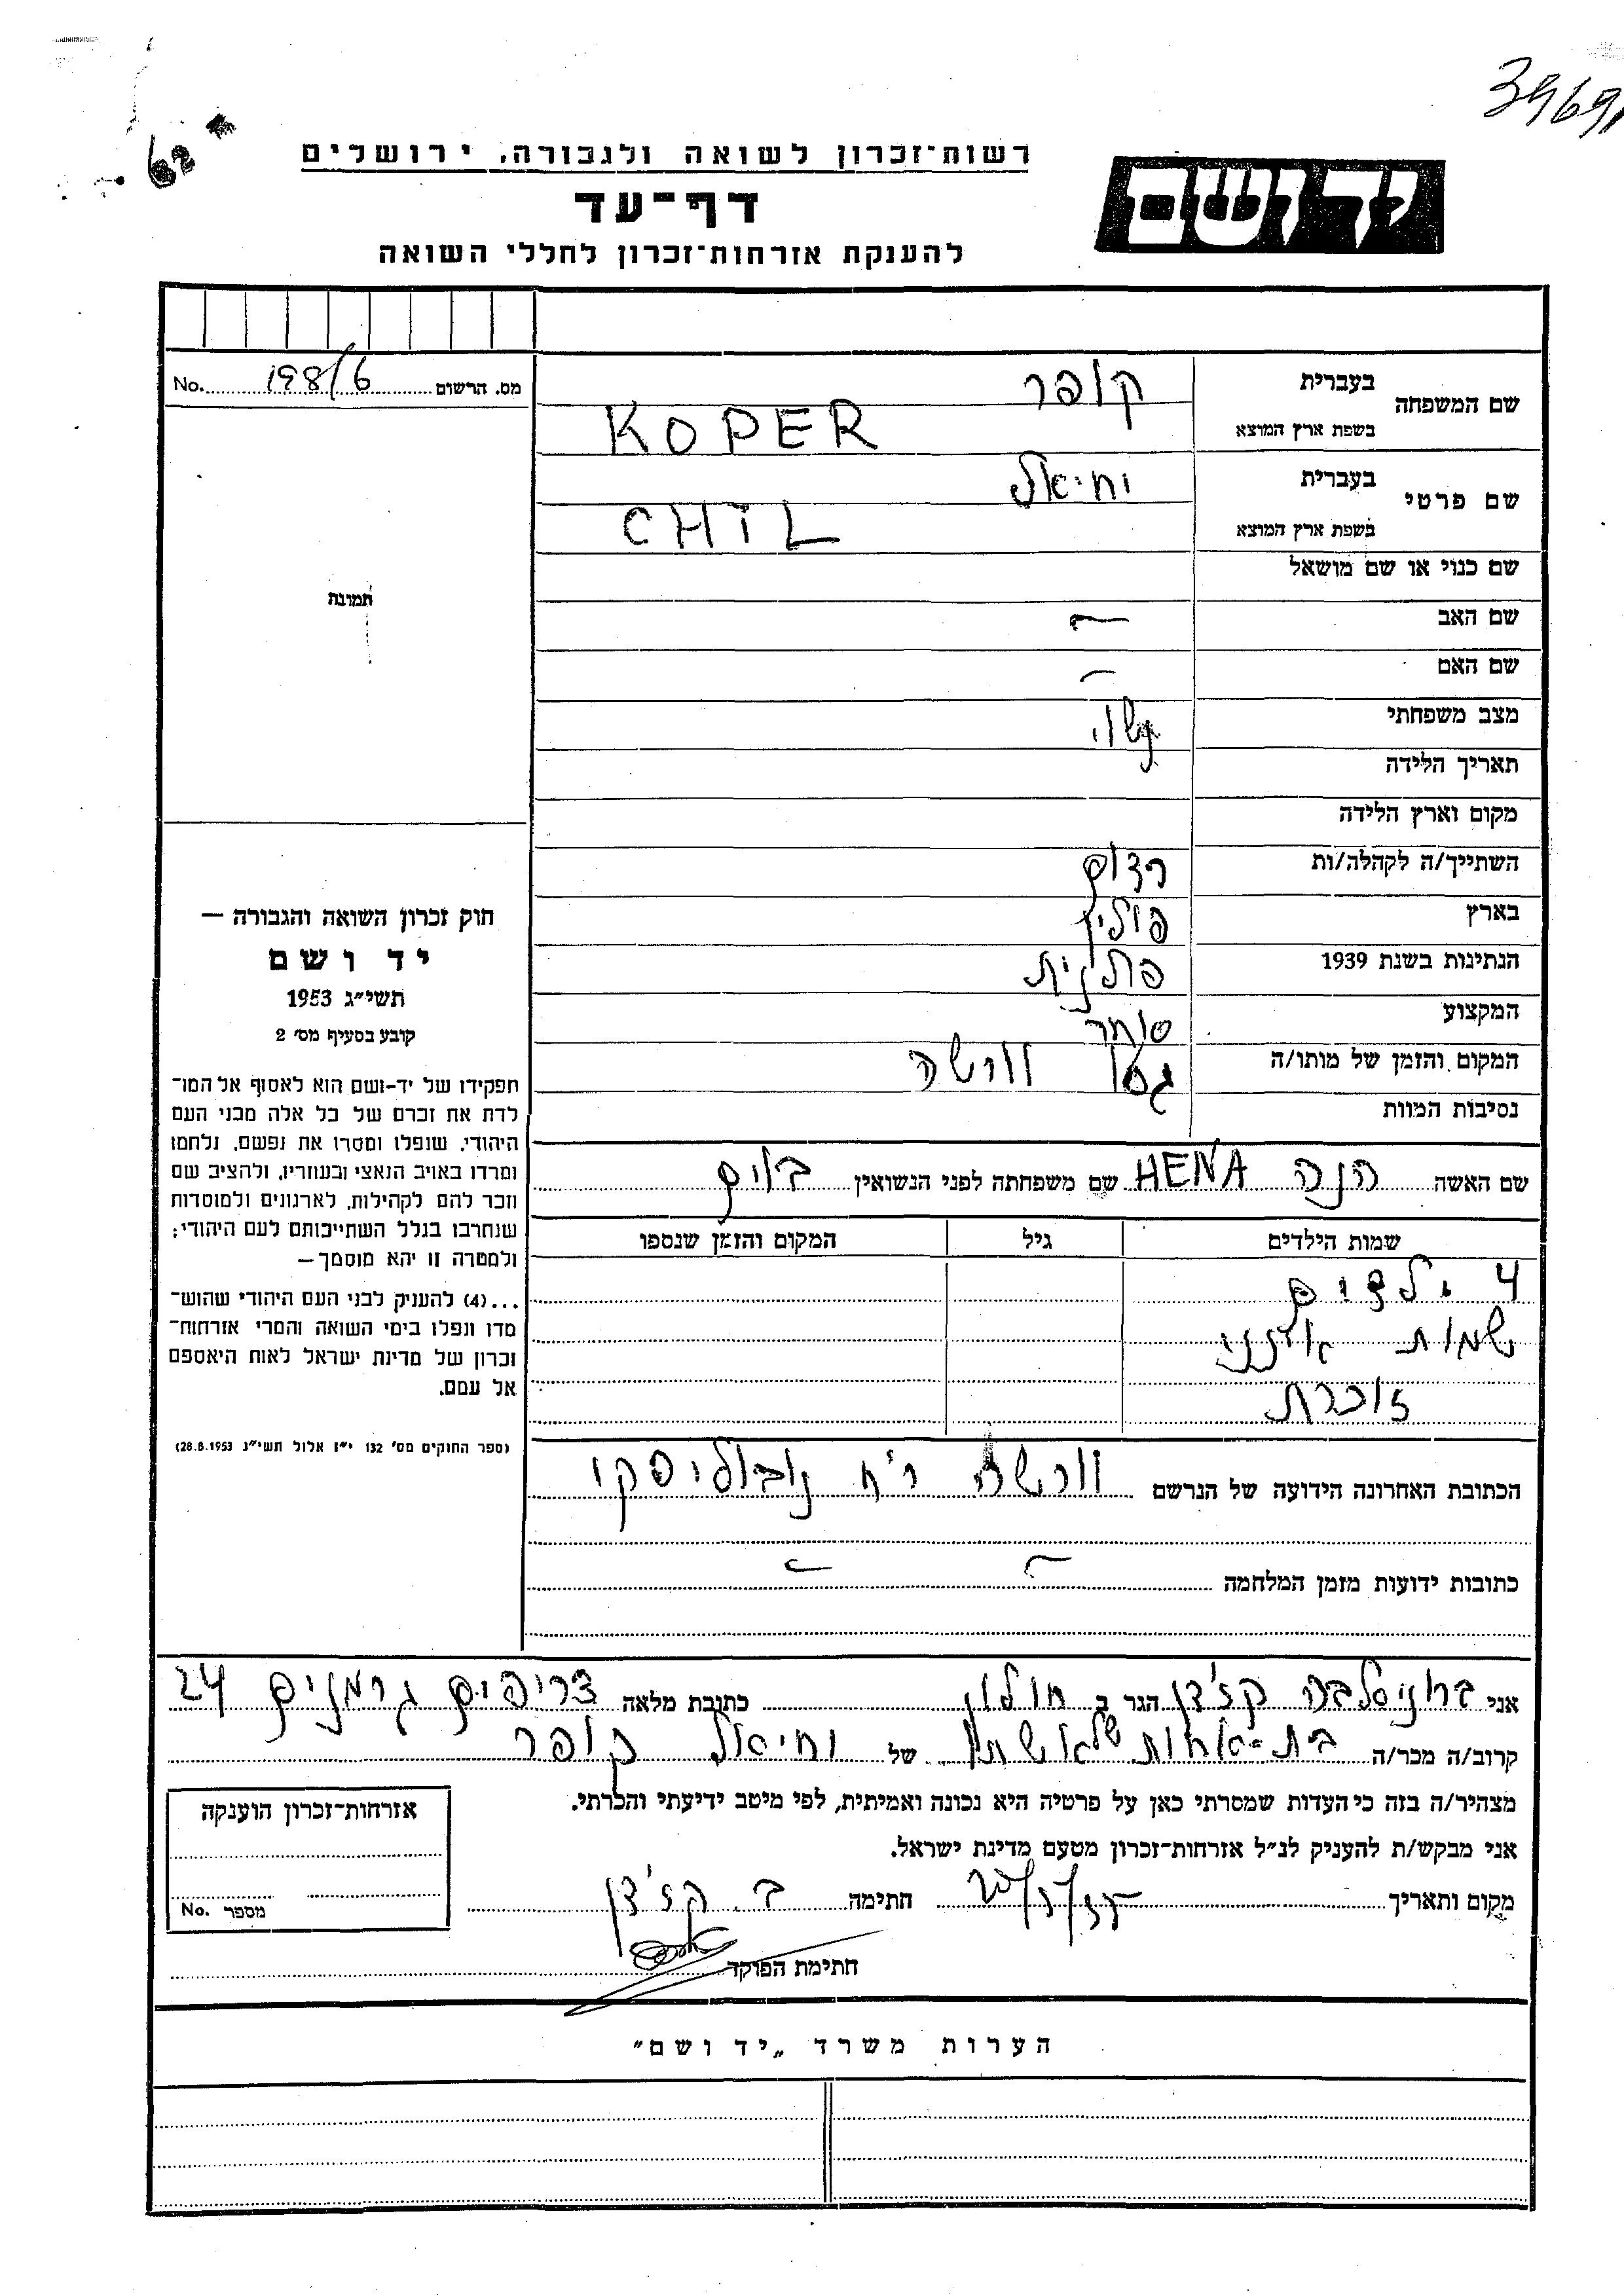 3969
62
רשות־זכרון לשואה ולגבורה, ירושלים
יד ושם
דף־עד
להענקת אזרחות־זכרון לחללי השואה
מס. הרשום 198/6 No.
שם המשפחה
בעברית קופר
בשפת ארץ המוצא KOPER
שם פרטי
בעברית יחיאל
בשפת ארץ המוצא CHIL
שם כנוי או שם מושאל
תמונה
שם האב –
שם האם –
מצב משפחתי נשוי
תאריך הלידה
מקום וארץ הלידה
השתייך/ה לקהלה/ות רדום
בארץ פולין
הנתינות בשנת 1939 פולנית
המקצוע סוחר
המקום והזמן של מותו/ה גטו וורשה
נסיבות המוות
שם האשה הנה HENA שם משפחתה לפני הנשואין בוים
שמות הילדים גיל המקום והזמן שנספו
4 ילדים
שמות אינני
זוכרת
הכתובת האחרונה הידועה של הנרשם וורשה רח' נובוליפקי
כתובות ידועות מזמן המלחמה – –
חוק זכרון השואה והגבורה —
יד ושם
תשי״ג 1953
קובע בסעיף מס׳ 2
תפקידו של יד-ושם הוא לאסוף אל המו־
לדת את זכרם של כל אלה מבני העם
היהודי, שנפלו ומסרו את נפשם, נלחמו
ומרדו באויב הנאצי ובעוזריו, ולהציב שם
וזכר להם לקהילות, לארגונים ולמוסדות
שנחרבו בגלל השתייכותם לעם היהודי;
ולמטרה זו יהא מוסמך —
...(4) להעניק לבני העם היהודי שהוש־
מדו ונפלו בימי השואה והמרי אזרחות־
זכרון של מדינת ישראל לאות היאספם
אל עמם.
(ספר החוקים מס׳ 132 י״ז אלול תשי״ג 28.8.1953)
אני ברוניסלבה קז'דן הגר ב חולון כתובת מלאה צריפים גרמנים 24
קרוב/ה מכר/ה בת-אחות של אשתו של יחיאל קופר
מצהיר/ה בזה כי העדות שמסרתי כאן על פרטיה היא נכונה ואמיתית, לפי מיטב ידיעתי והכרתי.
אני מבקש/ת להעניק לנ״ל אזרחות־זכרון מטעם מדינת ישראל.
מקום ותאריך חתימה ב. קז'דן
חתימת הפוקד
אזרחות־זכרון הוענקה
מספר No.
הערות משרד „יד ושם״